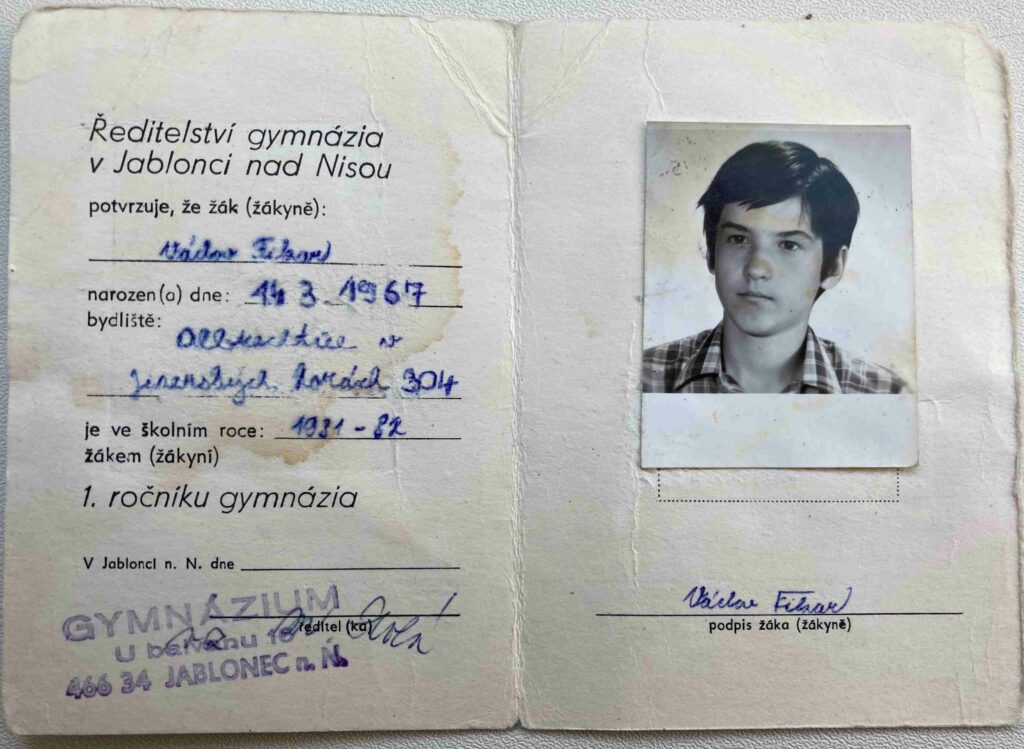 Ředitelství gymnázia
v Jablonci nad Nisou
potvrzuje, že žák (žákyně):
Václav Fikar
narozen(a) dne: 14 3 1967
bydliště:
v
Jizerských horách 304
je ve školním roce: 1981 - 82
žákem (žákyní)
1. ročníku gymnázia
V Jablonci n. N. dne
GYMNÁZIUM
ředitel (ka)
U 16
466 34 JABLONEC n. N.
Václav Fikar
podpis žáka (žákyně)